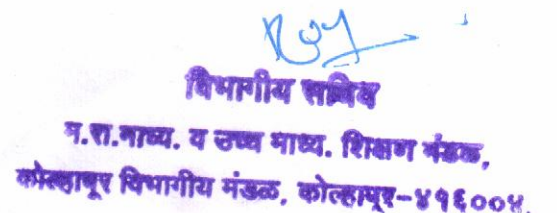 विभागीय सचिव
म.रा.माध्य. व उच्च माध्य. शिक्षण मंडळ,
कोल्हापूर विभागीय मंडळ, कोल्हापूर-४१६००४.